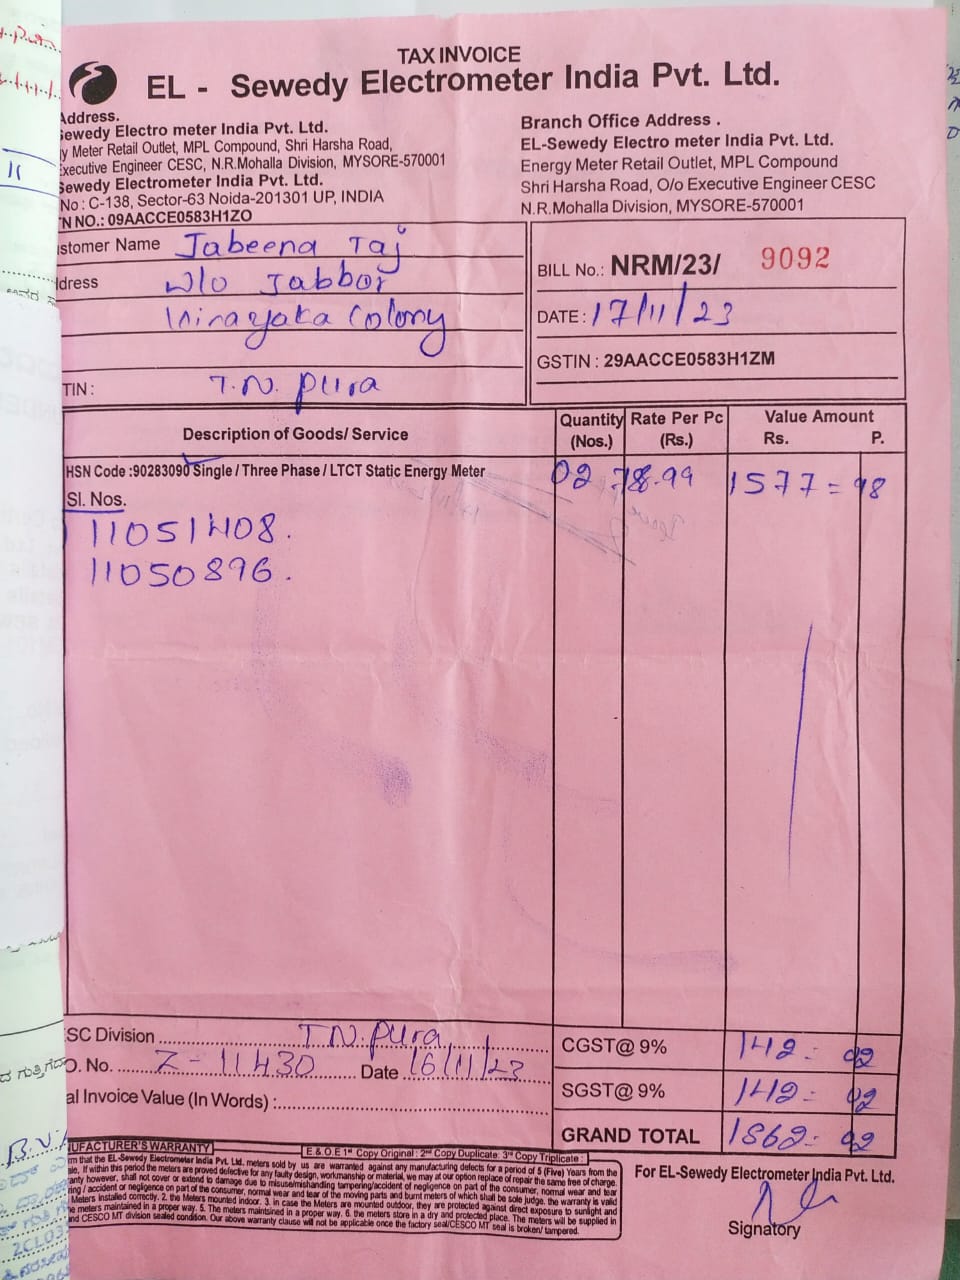 TAX INVOICE
EL - Sewedy Electrometer India Pvt. Ltd.
Address.
Sewedy Electro meter India Pvt. Ltd.
y Meter Retail Outlet, MPL Compound, Shri Harsha Road,
Executive Engineer CESC, N.R.Mohalla Division, MYSORE-570001
Sewedy Electrometer India Pvt. Ltd.
No : C-138, Sector-63 Noida-201301 UP, INDIA
TN NO.: 09AACCE0583H1ZO
Branch Office Address .
EL-Sewedy Electro meter India Pvt. Ltd.
Energy Meter Retail Outlet, MPL Compound
Shri Harsha Road, O/o Executive Engineer CESC
N.R.Mohalla Division, MYSORE-570001
stomer Name Jabeena Taj
dress W/o Jabbor
Vinayaka Colony
TIN : T.N. Pura
BILL No.: NRM/23/ 9092
DATE : 17/11/23
GSTIN : 29AACCE0583H1ZM
Description of Goods/ Service Quantity (Nos.) Rate Per Pc (Rs.) Value Amount Rs. P.
HSN Code :90283090 Single / Three Phase / LTCT Static Energy Meter 02 78.99 1577 = 98
Sl. Nos.
11051408.
11050896.
SC Division T.N. Pura
O. No. Z-11430 Date 16/11/23
al Invoice Value (In Words) :
CGST@ 9% 142 = 02
SGST@ 9% 142 = 02
GRAND TOTAL 1862 = 02
UFACTURER'S WARRANTY
E. & O.E 1st Copy Original : 2nd Copy Duplicate: 3rd Copy Triplicate :
rm that the EL-Sewedy Electrometer India Pvt. Ltd. meters sold by us are warranted against any manufacturing defects for a period of 5 (Five) Years from the
ale, If within this period the meters are proved defective for any faulty design, workmanship or material, we may at our option replace of repair the same free of charge.
anty however, shall not cover or extend to damage due to misuse/mishandling tampering/accident of negligence on part of the consumer, normal wear and tear
ring / accident or negligence on part of the consumer, normal wear and tear of the moving parts and burnt meters of which shall be sole judge. the warranty is valid
Meters installed correctly. 2. the Meters mounted indoor. 3. in case the Meters are mounted outdoor, they are protected against direct exposure to sunlight and
e meters maintained in a proper way. 5. The meters maintained in a proper way. 6. the meters store in a dry and protected place. The meters will be supplied in
nd CESCO MT division sealed condition. Our above warranty clause will not be applicable once the factory seal/CESCO MT seal is broken/ tampered.
For EL-Sewedy Electrometer India Pvt. Ltd.
Signatory